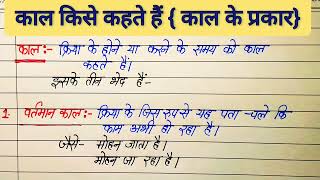 काल किसे कहते हैं { काल के प्रकार}
काल :- क्रिया के होने या करने के समय को काल
कहते हैं।
इसके तीन भेद हैं-
1. वर्तमान काल:- क्रिया के जिस रूप से यह पता -चले कि
काम अभी हो रहा है।
जैसे- मोहन जाता है।
मोहन जा रहा है।